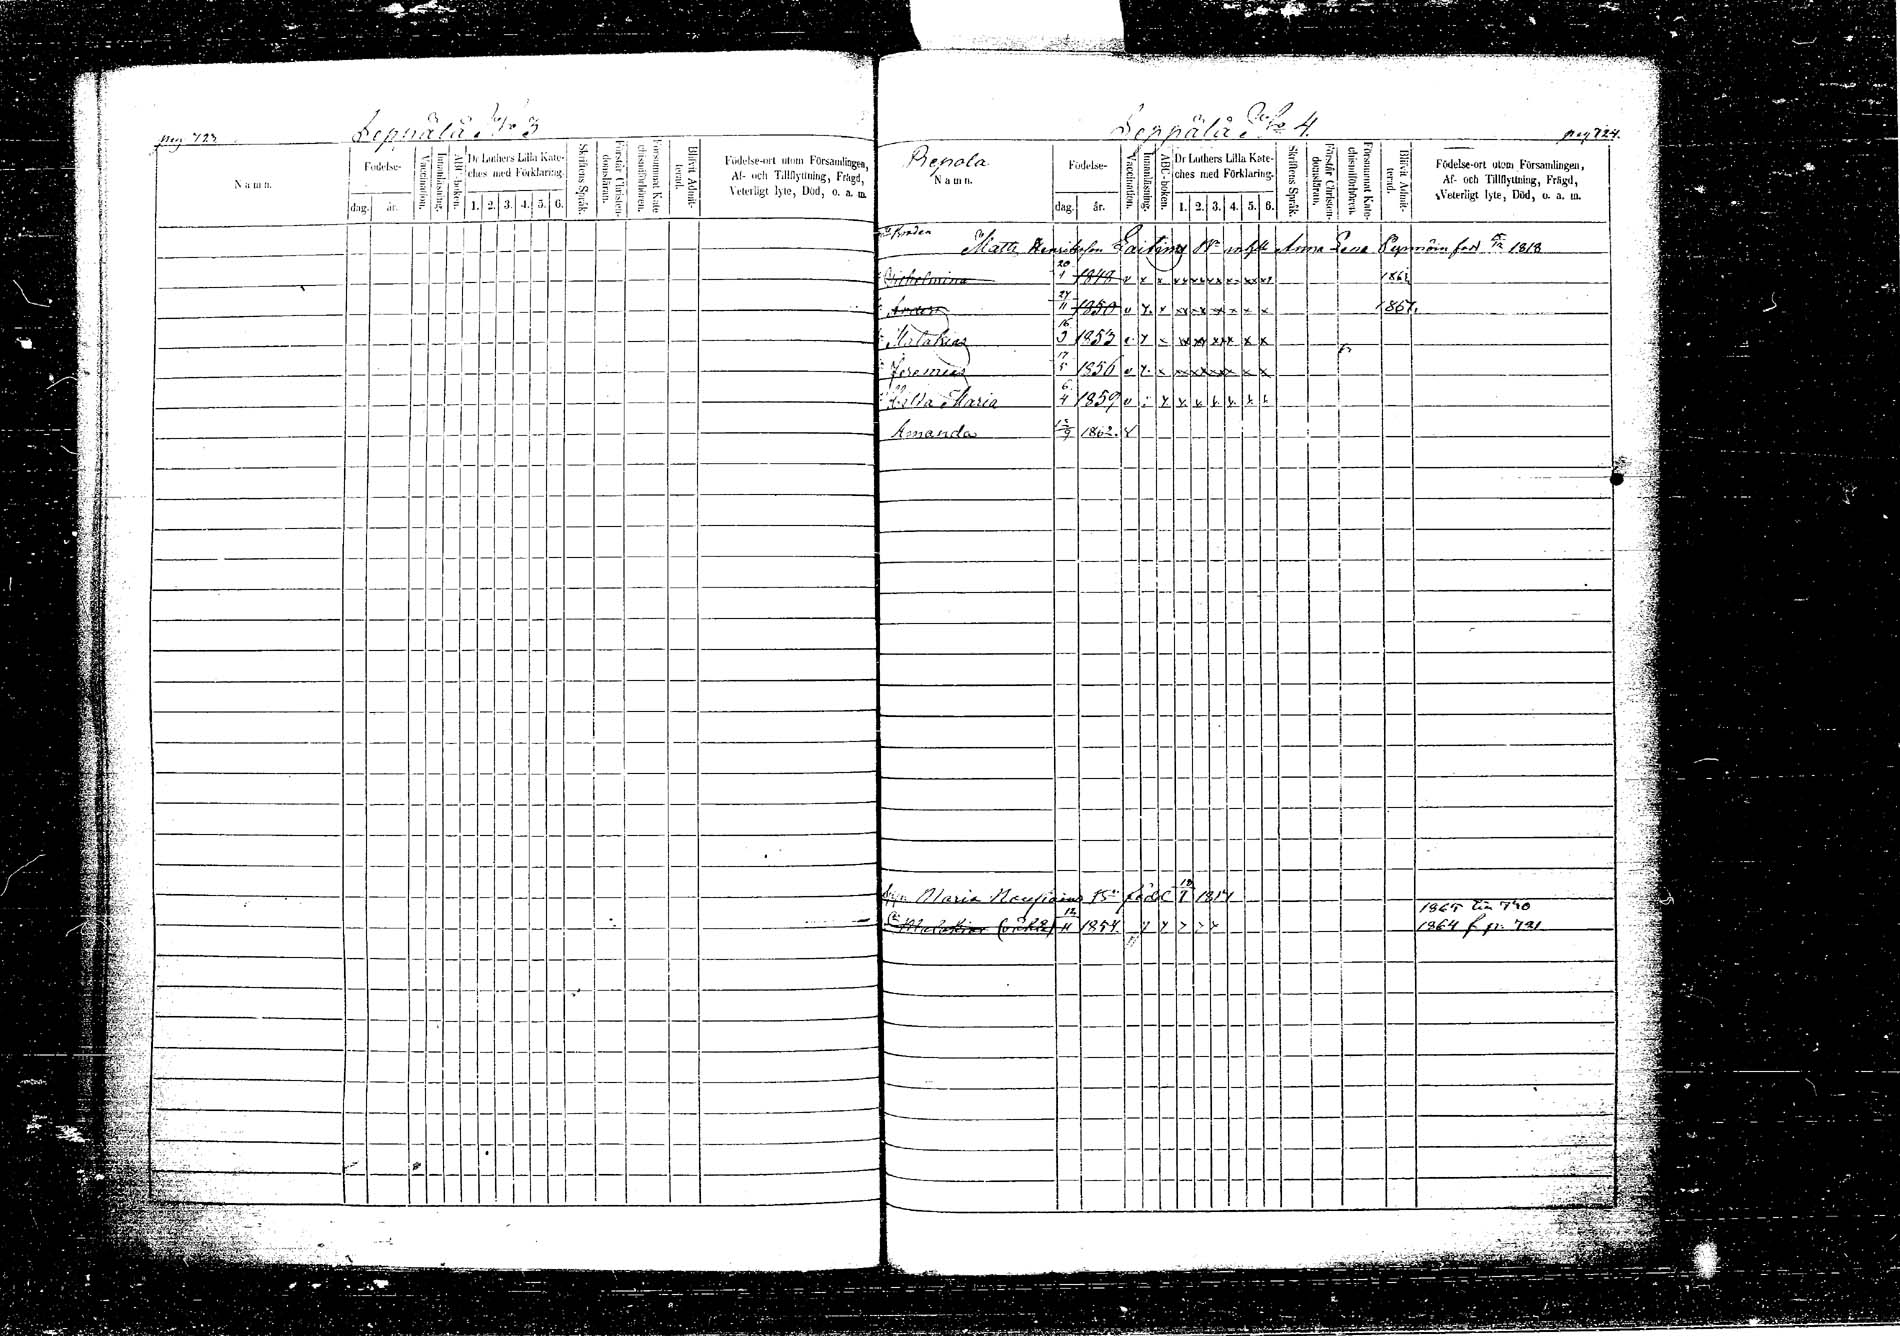 pag 723
Leppälä No 3
Namn.
Födelse-
dag.
år.
Vaccination.
Innanläsning.
ABC-boken.
Dr Luthers Lilla Kate-
ches med Förklaring.
1. 2. 3. 4. 5. 6.
Skriftens Språk.
Förstår Christen-
domsläran.
Försummat Kate-
chismiförhören.
Blifvit Admit-
terad.
Födelse-ort utom Församlingen,
Af- och Tillflyttning, Frägd,
Veterligt lyte, Död, o. a. m.
Leppälä No 4.
pag 724.
Repola
Namn.
Födelse-
dag.
år.
Vaccination.
Innanläsning.
ABC-boken.
Dr Luthers Lilla Kate-
ches med Förklaring.
1. 2. 3. 4. 5. 6.
Skriftens Språk.
Förstår Christen-
domsläran.
Försummat Kate-
chismiförhören.
Blifvit Admit-
terad.
Födelse-ort utom Församlingen,
Af- och Tillflyttning, Frägd,
Veterligt lyte, Död, o. a. m.
Matts Henriksson Anna Lena 1818
Wilhelmina 20/1 1848
Anders 27/11 1850 1867.
Malakias 16/3 1853
Jeremias 17/5 1856
Maria 6/4 1859
Amanda 12/9 1862.
Maria född 1817
1865 till 730
Malakias 12/11 1854 1864 f p. 721